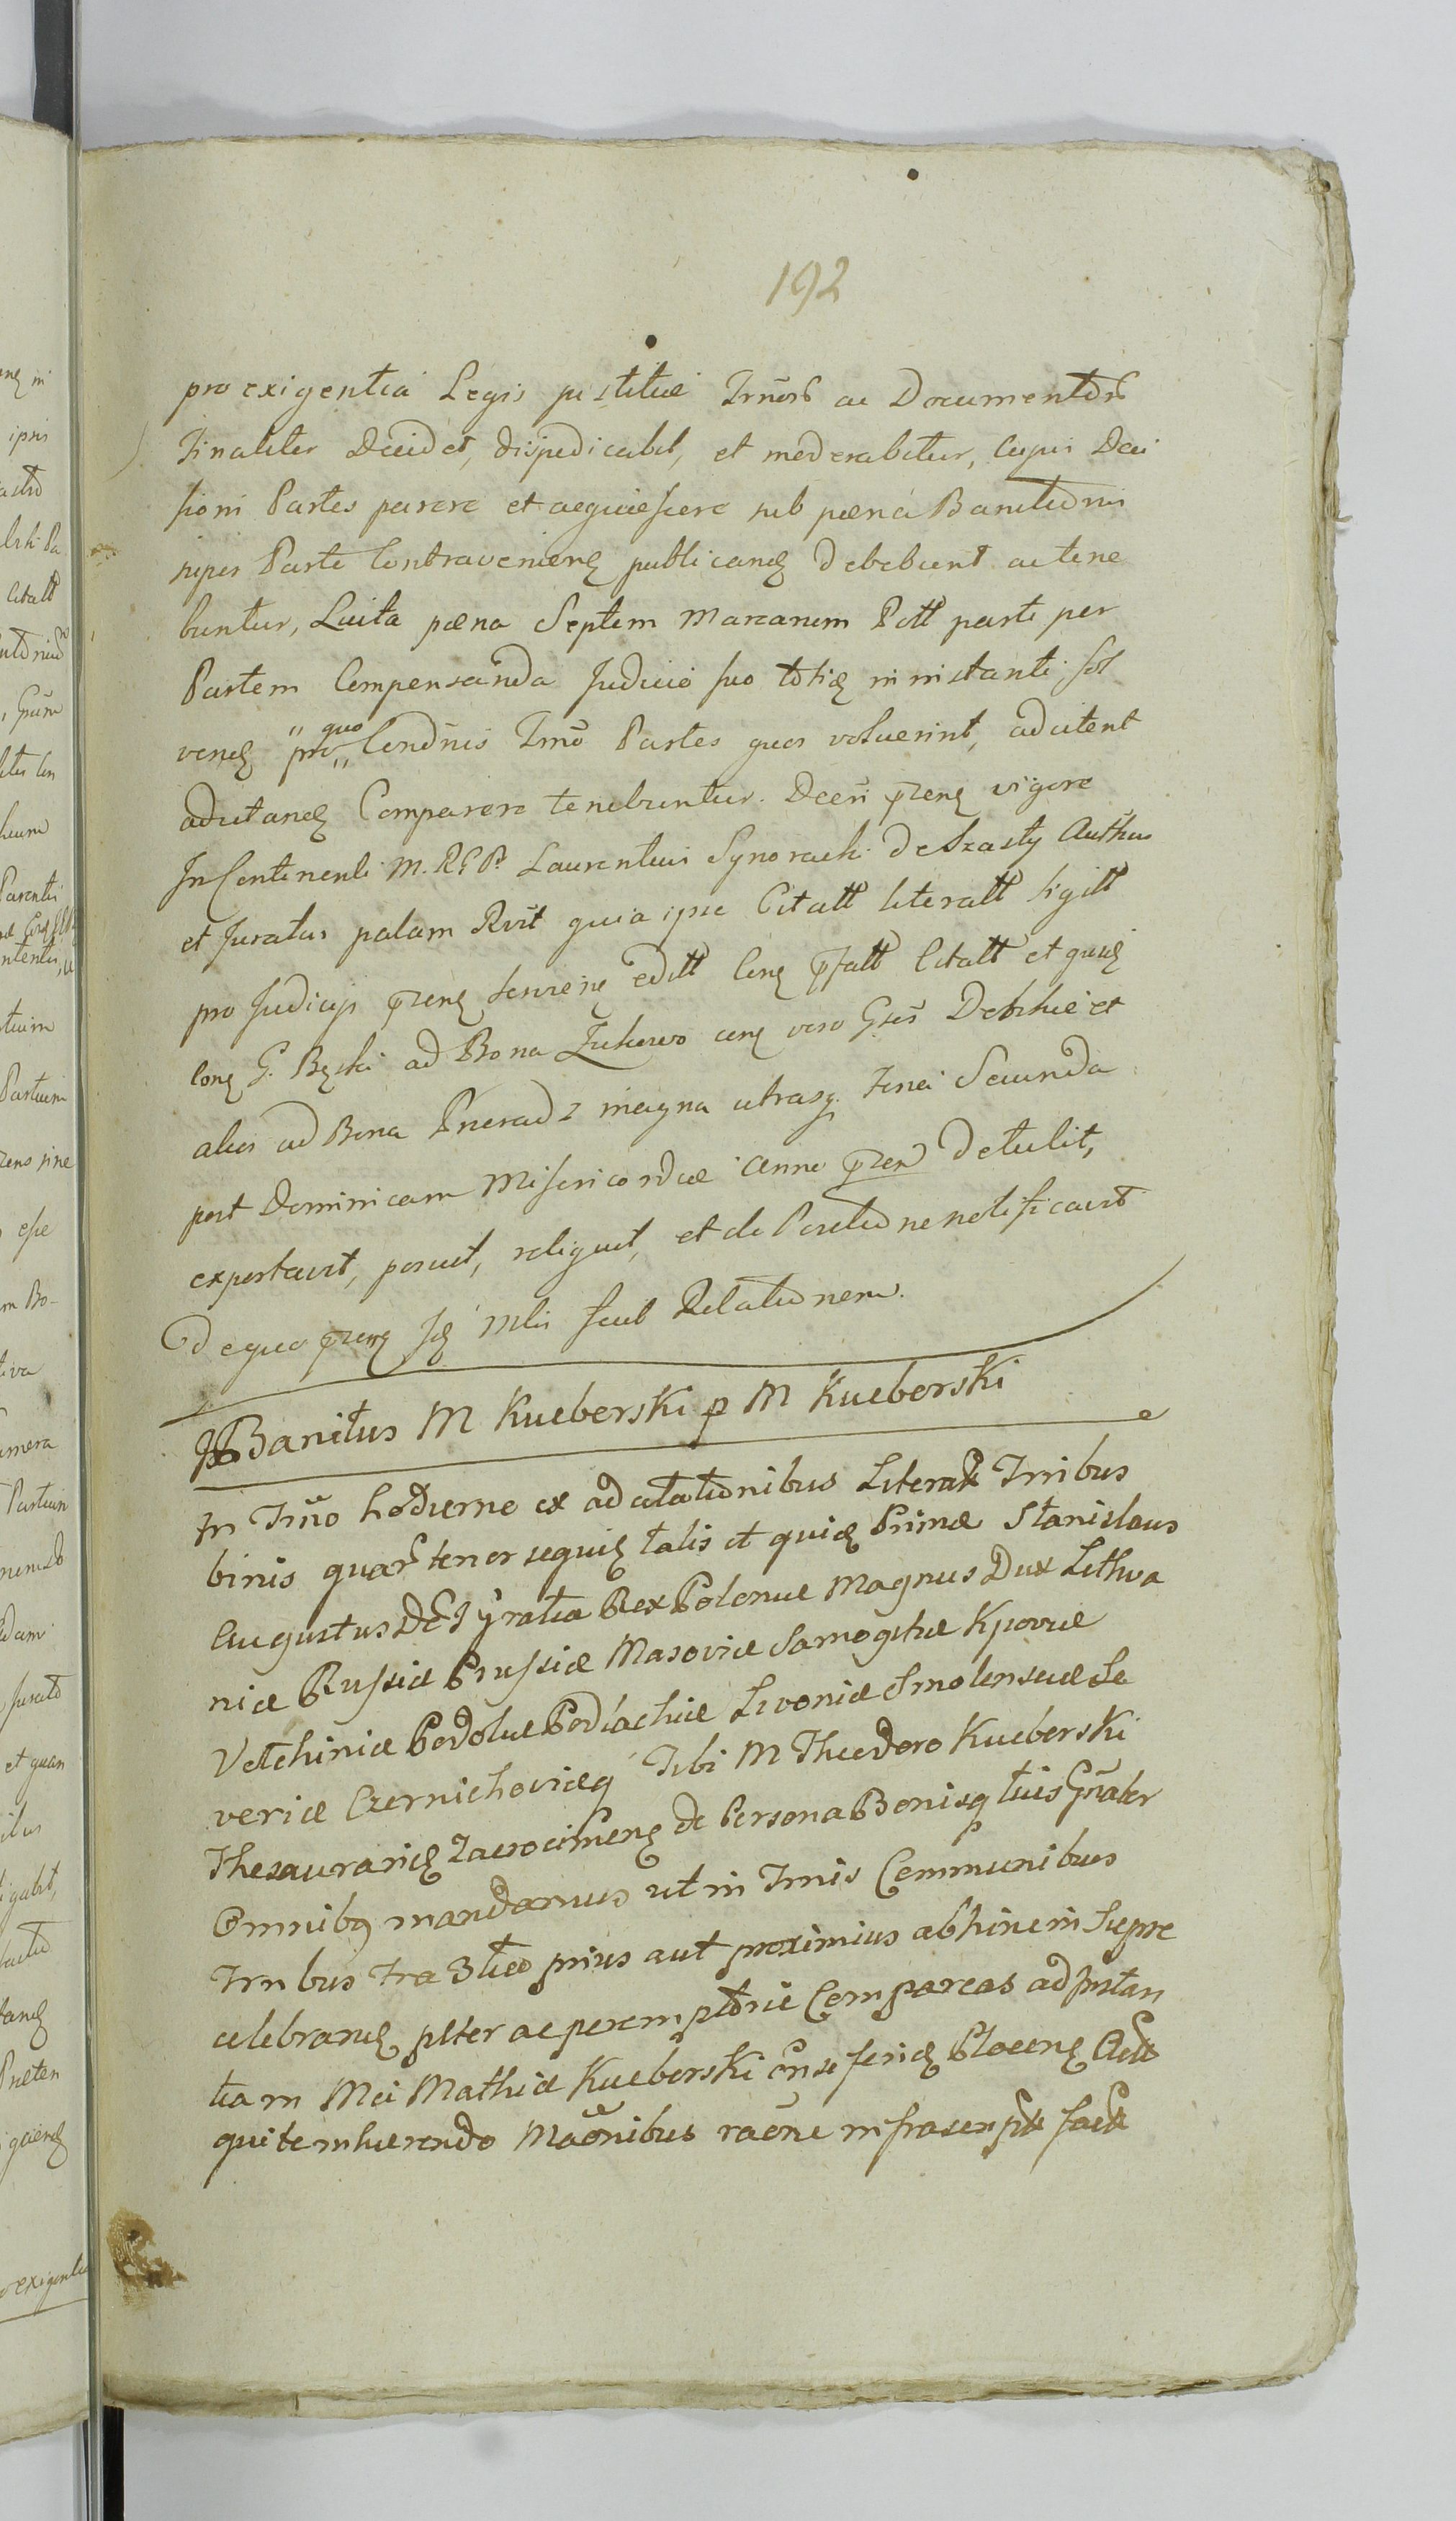 192
pro exigentia Legis justitiæ Irnōrū ac Documentorū
Finaliter Decidet, disjudicabit, et moderabitur, Cujus Deci
sioni Partes parere et acquiescere sub pœna Banitionis
super Parte Contraveniens publicand debebunt ac tene
buntur, Luita pœna Septem Marcarum Poll parti per
Partem Compensanda Judicio suo toties in instanti sol
vend pro quo Condnis Trnō Partes quos voluerint, adcitent
adcitand Comparere tenebuntur. Decri przens vigore
In Continenti M. R. G. Pt Laurentius Synoracki de Szasty Authus
et Juratus palam Rvit quia ipse Citatt literatt sigill
pro Judicijs przens editt Cons pfatt Citatt et quid
Cons G. Bęski ad Bona Zukowo cons vero Gsū Debskie et
alios ad Bona Pneradz magna utrasq Feria Secunda
post Dominicam Misericordiæ Anno przen Detulit,
exportavit, posuit, reliquit, et de Positione notificavit
De quo przens sd Mlis fecit Relationem.
Banitus M Kucborski p M Kucborski
In Trno hodierno ex adcitationibus Literar Trribus
binis quar tenor sequit talis et quid Primæ Stanislaus
Augustus DEI Gratia Rex Poloniæ Magnus Dux Lithva
niæ Russiæ Prussiæ Masoviæ Samogitiæ Kyoviæ
Volchiniæ Podoliæ Podlachiæ Livoniæ Smolensciæ Se
veriæ Czernichoviæq Tibi M Theodoro Kucborski
Thesaurarid Zacrocimens de Persona Bonisq tuis Gnāler
Omnibq mandamus ut in Trnis Communibus
Trribus Fra 3tio prius aut proximius abhinc in Sierpc
celebrand plter ac peremptorie Compareas ad Instan
tiam Mci Mathiæ Kucborski Enseferid Plocens Act
qui te inhærendo Maōnibus raōne infrascrpt fact